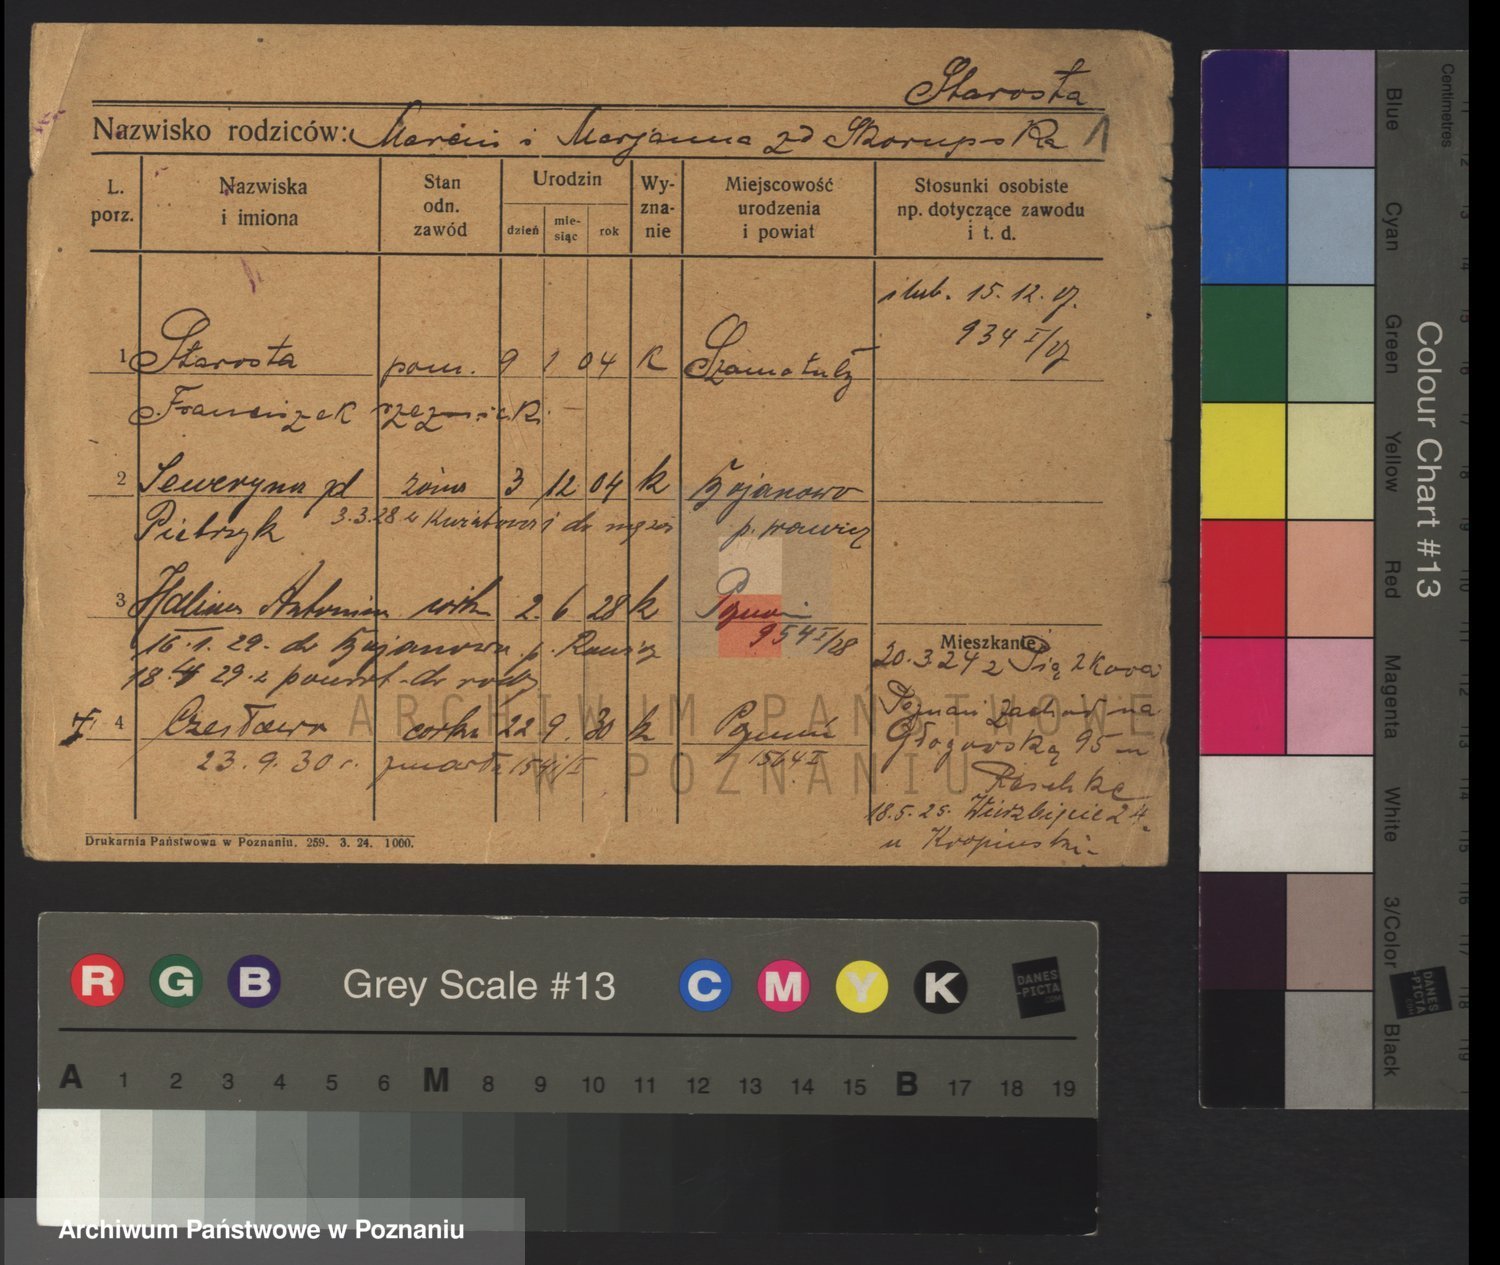 Starosta
Nazwisko rodziców: Marcin i Marjanna zd Skorupska 1
L. porz.
Nazwiska i imiona
Stan odn. zawód
Urodzin
dzień
mie-siąc
rok
Wy-zna-nie
Miejscowość urodzenia i powiat
Stosunki osobiste np. dotyczące zawodu i t. d.
ślub. 15. 12. 27.
934 I/27
1 Starosta pom. 9 1 04 K Szamotuły
Franciszek rzeźnicki
2 Seweryna zd żona 3 12 04 k Bojanowo
Pietrzyk 3.3.28 z do męża p. rawicz
3 Halina Antonina córka 2. 6 28 k Poznań
954 I/28
16. 1. 29. do Bojanowa p. Rawicz
18. 4 29. z powrot do rodz
4 Czesława córka 22 9. 30 k Poznań
23. 9. 30 r. zmarła 1541/I 1564 I
Mieszkanie
20. 3 24 z
Poznań zachodnia
Głogowska 95
Raschke
18. 5. 25. Wierzbięcice 24
u
Drukarnia Państwowa w Poznaniu. 259. 3. 24. 1000.
ARCHIWUM PAŃSTWOWE
W POZNANIU
R G B Grey Scale #13 C M Y K
DANES
-PICTA
.COM
A 1 2 3 4 5 6 M 8 9 10 11 12 13 14 15 B 17 18 19
Archiwum Państwowe w Poznaniu
Colour Chart #13
Centimetres
Blue
Cyan
Green
Yellow
Red
Magenta
White
3/Color
Black
DANES
-PICTA
.COM